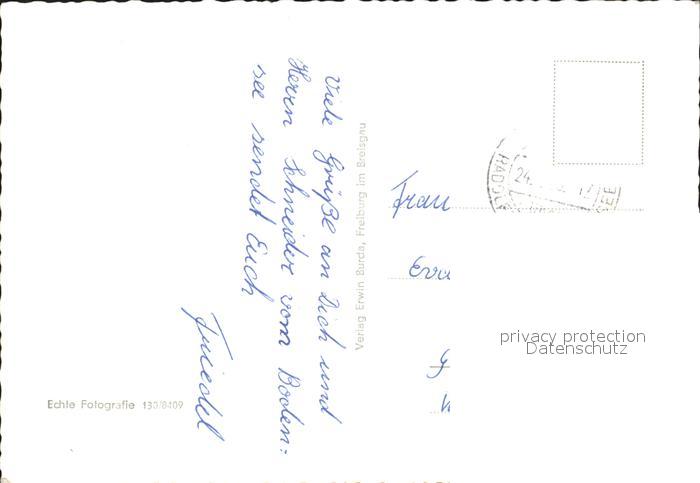 Viele Grüße an Dich und
Herrn Schneider vom Boden=
see sendet Euch
Friedel
Verlag Erwin Burda, Freiburg im Breisgau
Echte Fotografie 130/8409
Frau
privacy protection
Datenschutz
24.